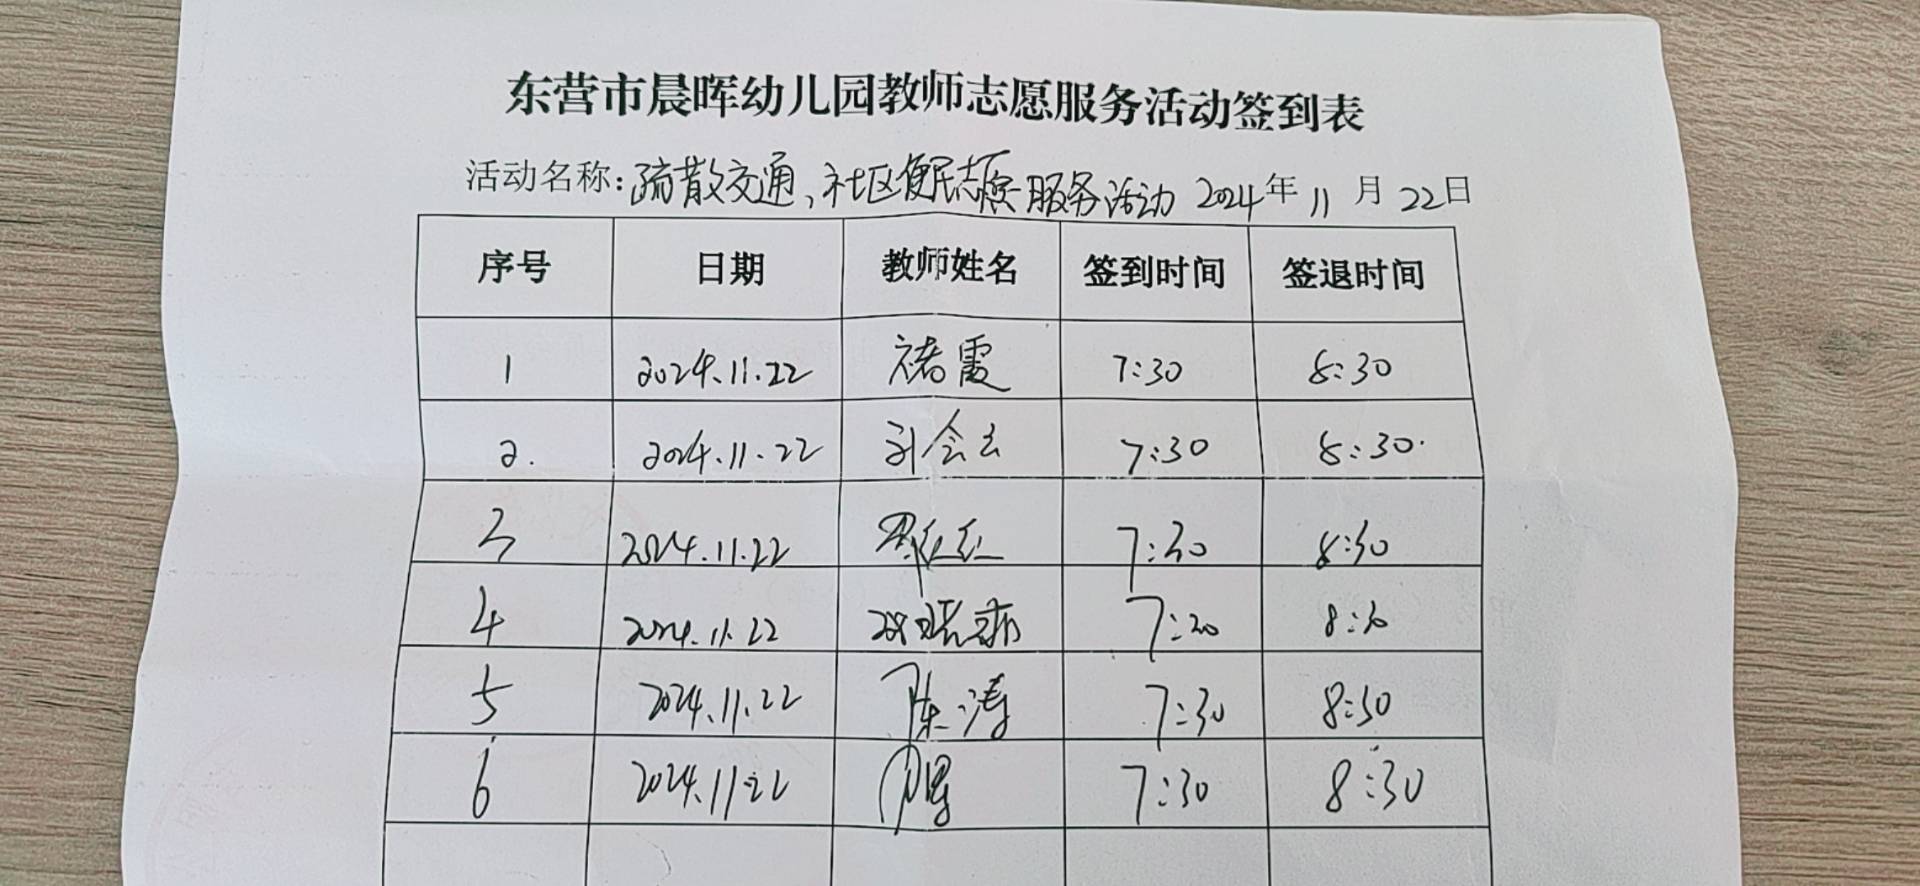 东营市晨晖幼儿园教师志愿服务活动签到表
活动名称:疏散交通、社区便民志愿服务活动 2024年 11 月 22日
序号 日期 教师姓名 签到时间 签退时间
1 2024.11.22 褚霞 7:30 8:30
2. 2024.11.22 7:30 8:30.
3 2024.11.22 7:30 8:30
4 2024.11.22 8:30
5 2024.11.22 陈涛 7:30 8:30
6 2024.11.22 7:30 8:30